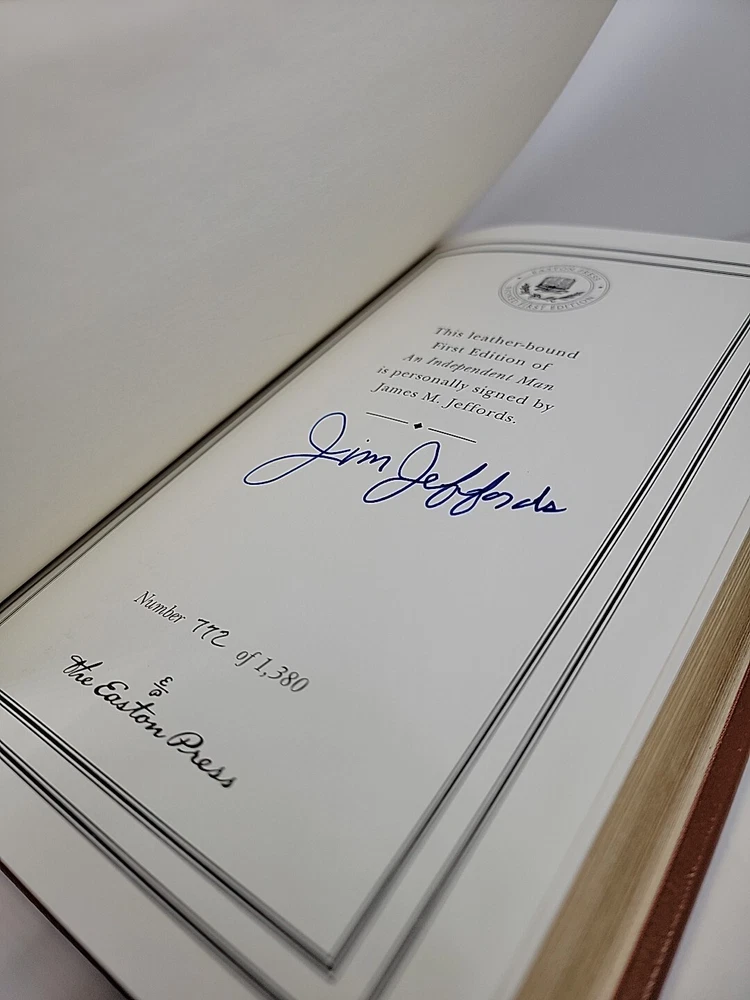 EASTON PRESS
SIGNED FIRST EDITION
This leather-bound
First Edition of
An Independent Man
is personally signed by
James M. Jeffords.
Jim Jeffords
Number 772 of 1,380
E
P
the Easton Press